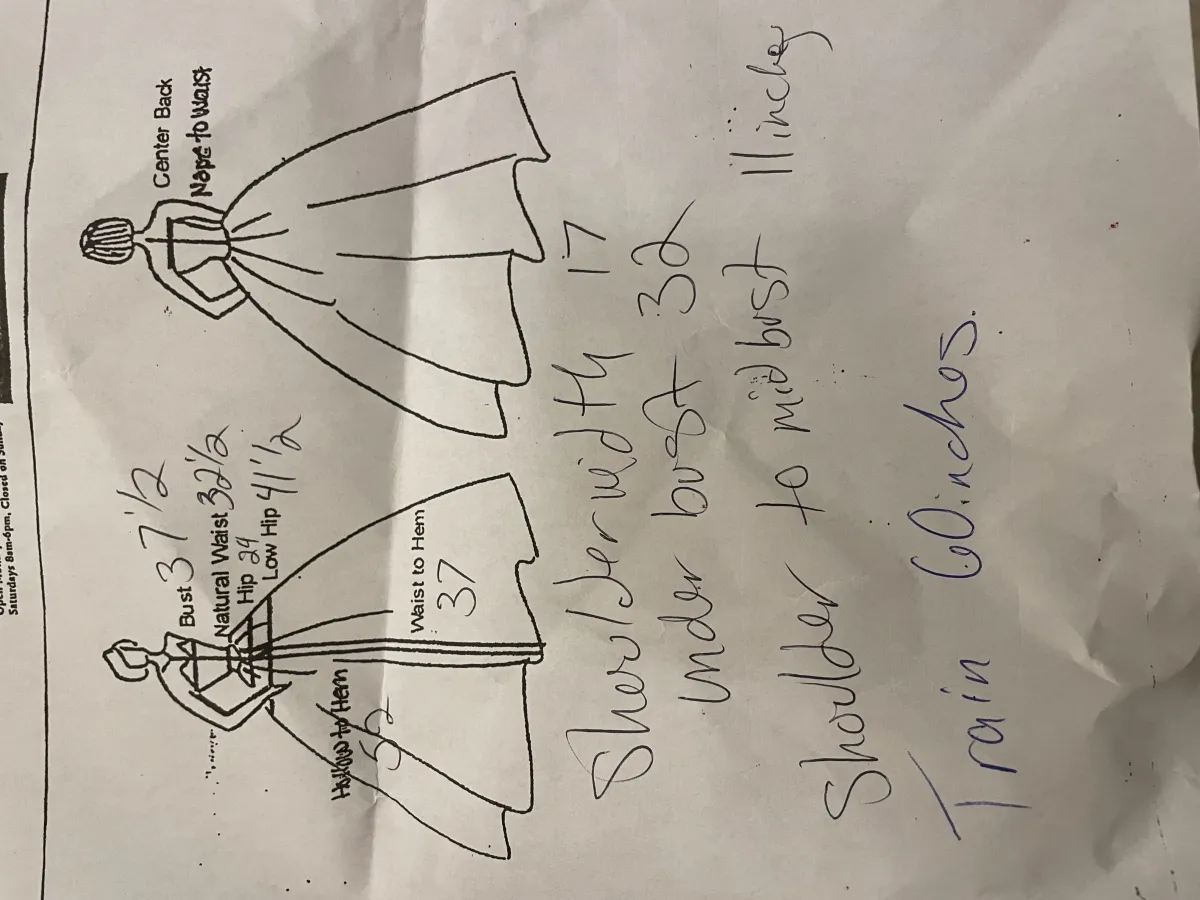 Saturdays 8am-6pm, Closed on
Bust 37 1/2
Natural Waist 32 1/2
Hip 29
Low Hip 41 1/2
Center Back
Nape to Waist
Hollow to Hem
52
Waist to Hem
37
Sheolder width 17
under bust 32
Shoulder to mid bust 11 inches
Train 60 inches.